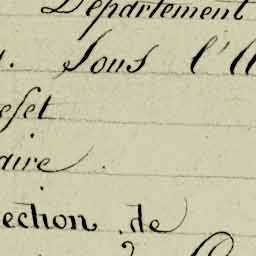 Département
. Sous l'
efet
aire .
ection de